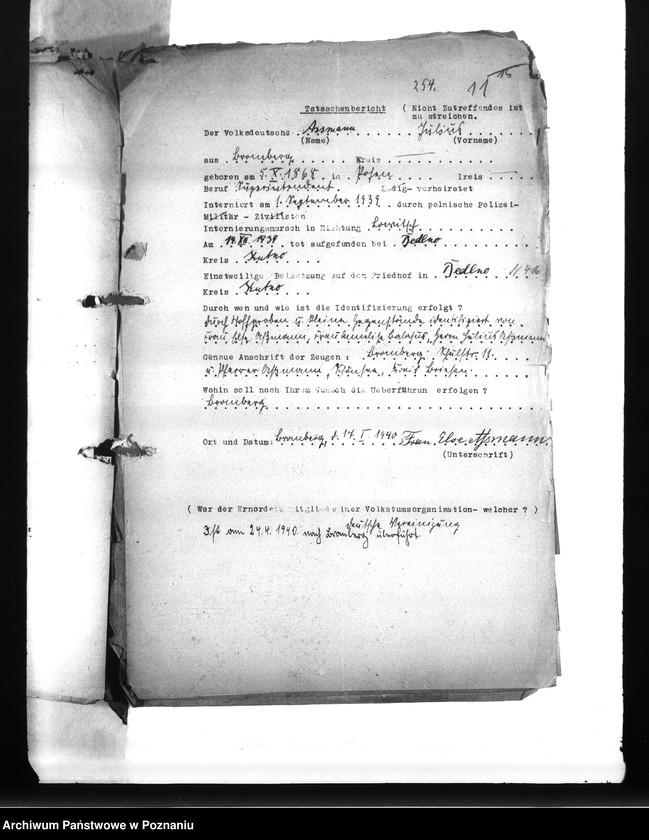 254.
11 15
Tatsachenbericht ( Nicht Zutreffendes ist
zu streichen.
Der Volksdeutsche Assmann Julius
(Name) (Vorname)
aus Bromberg Kreis
geboren am 5.X.1868 in Posen Kreis
Beruf Superintendent. Ledig- verheiratet
Interniert am 1. September 1939 durch polnische Polizei-
Militär - Zivilisten
Internierungsmarsch in Richtung Lowitsch
Am 19.XII 1939 tot aufgefunden bei Bedlno
Kreis Kutno
Einstweilige Beisetzung auf dem Friedhof in Bedlno
Kreis Kutno
Durch wen und wie ist die Identifizierung erfolgt ?
durch Stoffproben u. kleine Gegenstände identifiziert von
Frau Else Aßmann, Frau Annelise, Herrn Julius Aßmann
Genaue Anschrift der Zeugen : Bromberg Schulstr. 11.
u. Pfarrer Aßmann, Schönsee, Kreis Briesen.
Wohin soll nach Ihrem Wunsch die Ueberführun erfolgen ?
Bromberg
Ort und Datum: Bromberg, d. 14. I 1940 Frau Else Assmann.
(Unterschrift)
( War der Ermordete Mitglied einer Volkstumsorganisation- welcher ? )
deutsche Vereinigung
Ist am 24.4.1940 nach Bromberg überführt
Archiwum Państwowe w Poznaniu